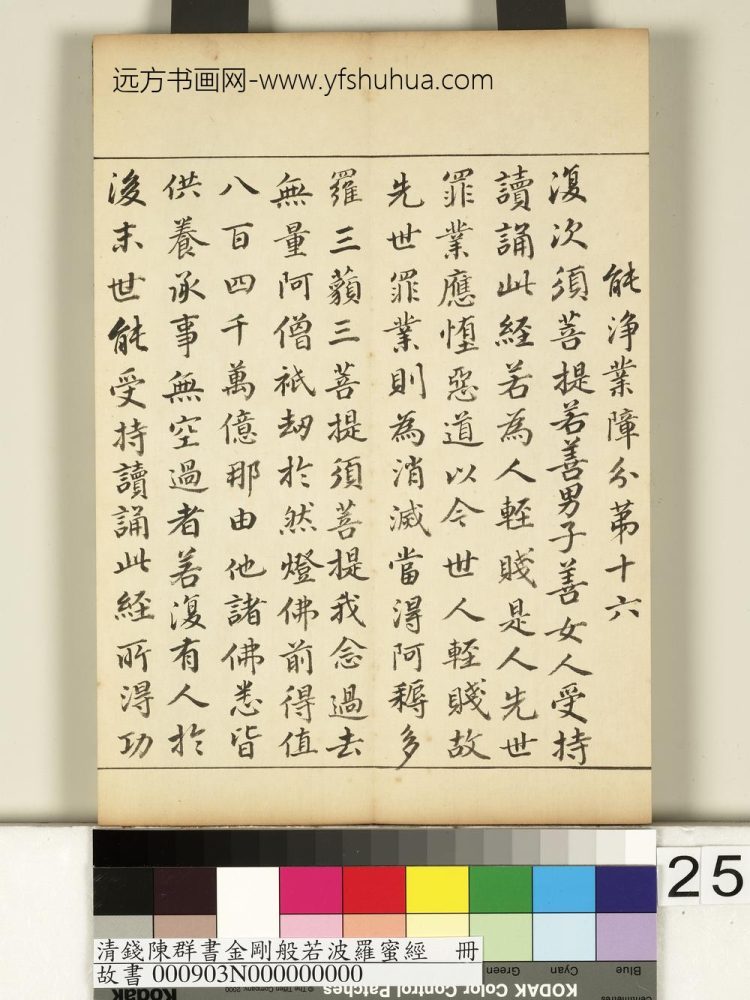 远方书画网-www.yfshuhua.com
能淨業障分第十六
復次須菩提若善男子善女人受持
讀誦此經若為人輕賤是人先世
罪業應墮惡道以今世人輕賤故
先世罪業則為消滅當得阿耨多
羅三藐三菩提須菩提我念過去
無量阿僧祇劫於然燈佛前得值
八百四千萬億那由他諸佛悉皆
供養承事無空過者若復有人於
後末世能受持讀誦此經所得功
25
清錢陳群書金剛般若波羅蜜經 冊
故書 000903N000000000
Blue
Cyan
Green
KODAK Color Control Patches
© The Tiffen Company, 2000
Centimetres